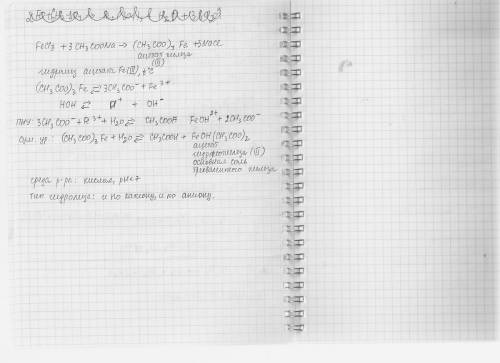 FeCl3 + 3CH3COONa → (CH3COO)3 Fe + 3NaCl
ацетат железа
(III)
гидролиз ацетата Fe(III), t°C
(CH3COO)3 Fe ⇄ 3CH3COO⁻ + Fe³⁺
HOH ⇄ H⁺ + OH⁻
3CH3COO⁻ + Fe³⁺ + H2O ⇄ CH3COOH FeOH²⁺ + 2CH3COO⁻
ур.: (CH3COO)3 Fe + H2O ⇄ CH3COOH + FeOH(CH3COO)2
ацетат
гидроксожелеза (III)
основная соль
трёхвалентного железа
среда р-ра: кислая, pH<7
тип гидролиза: и по катиону, и по аниону.